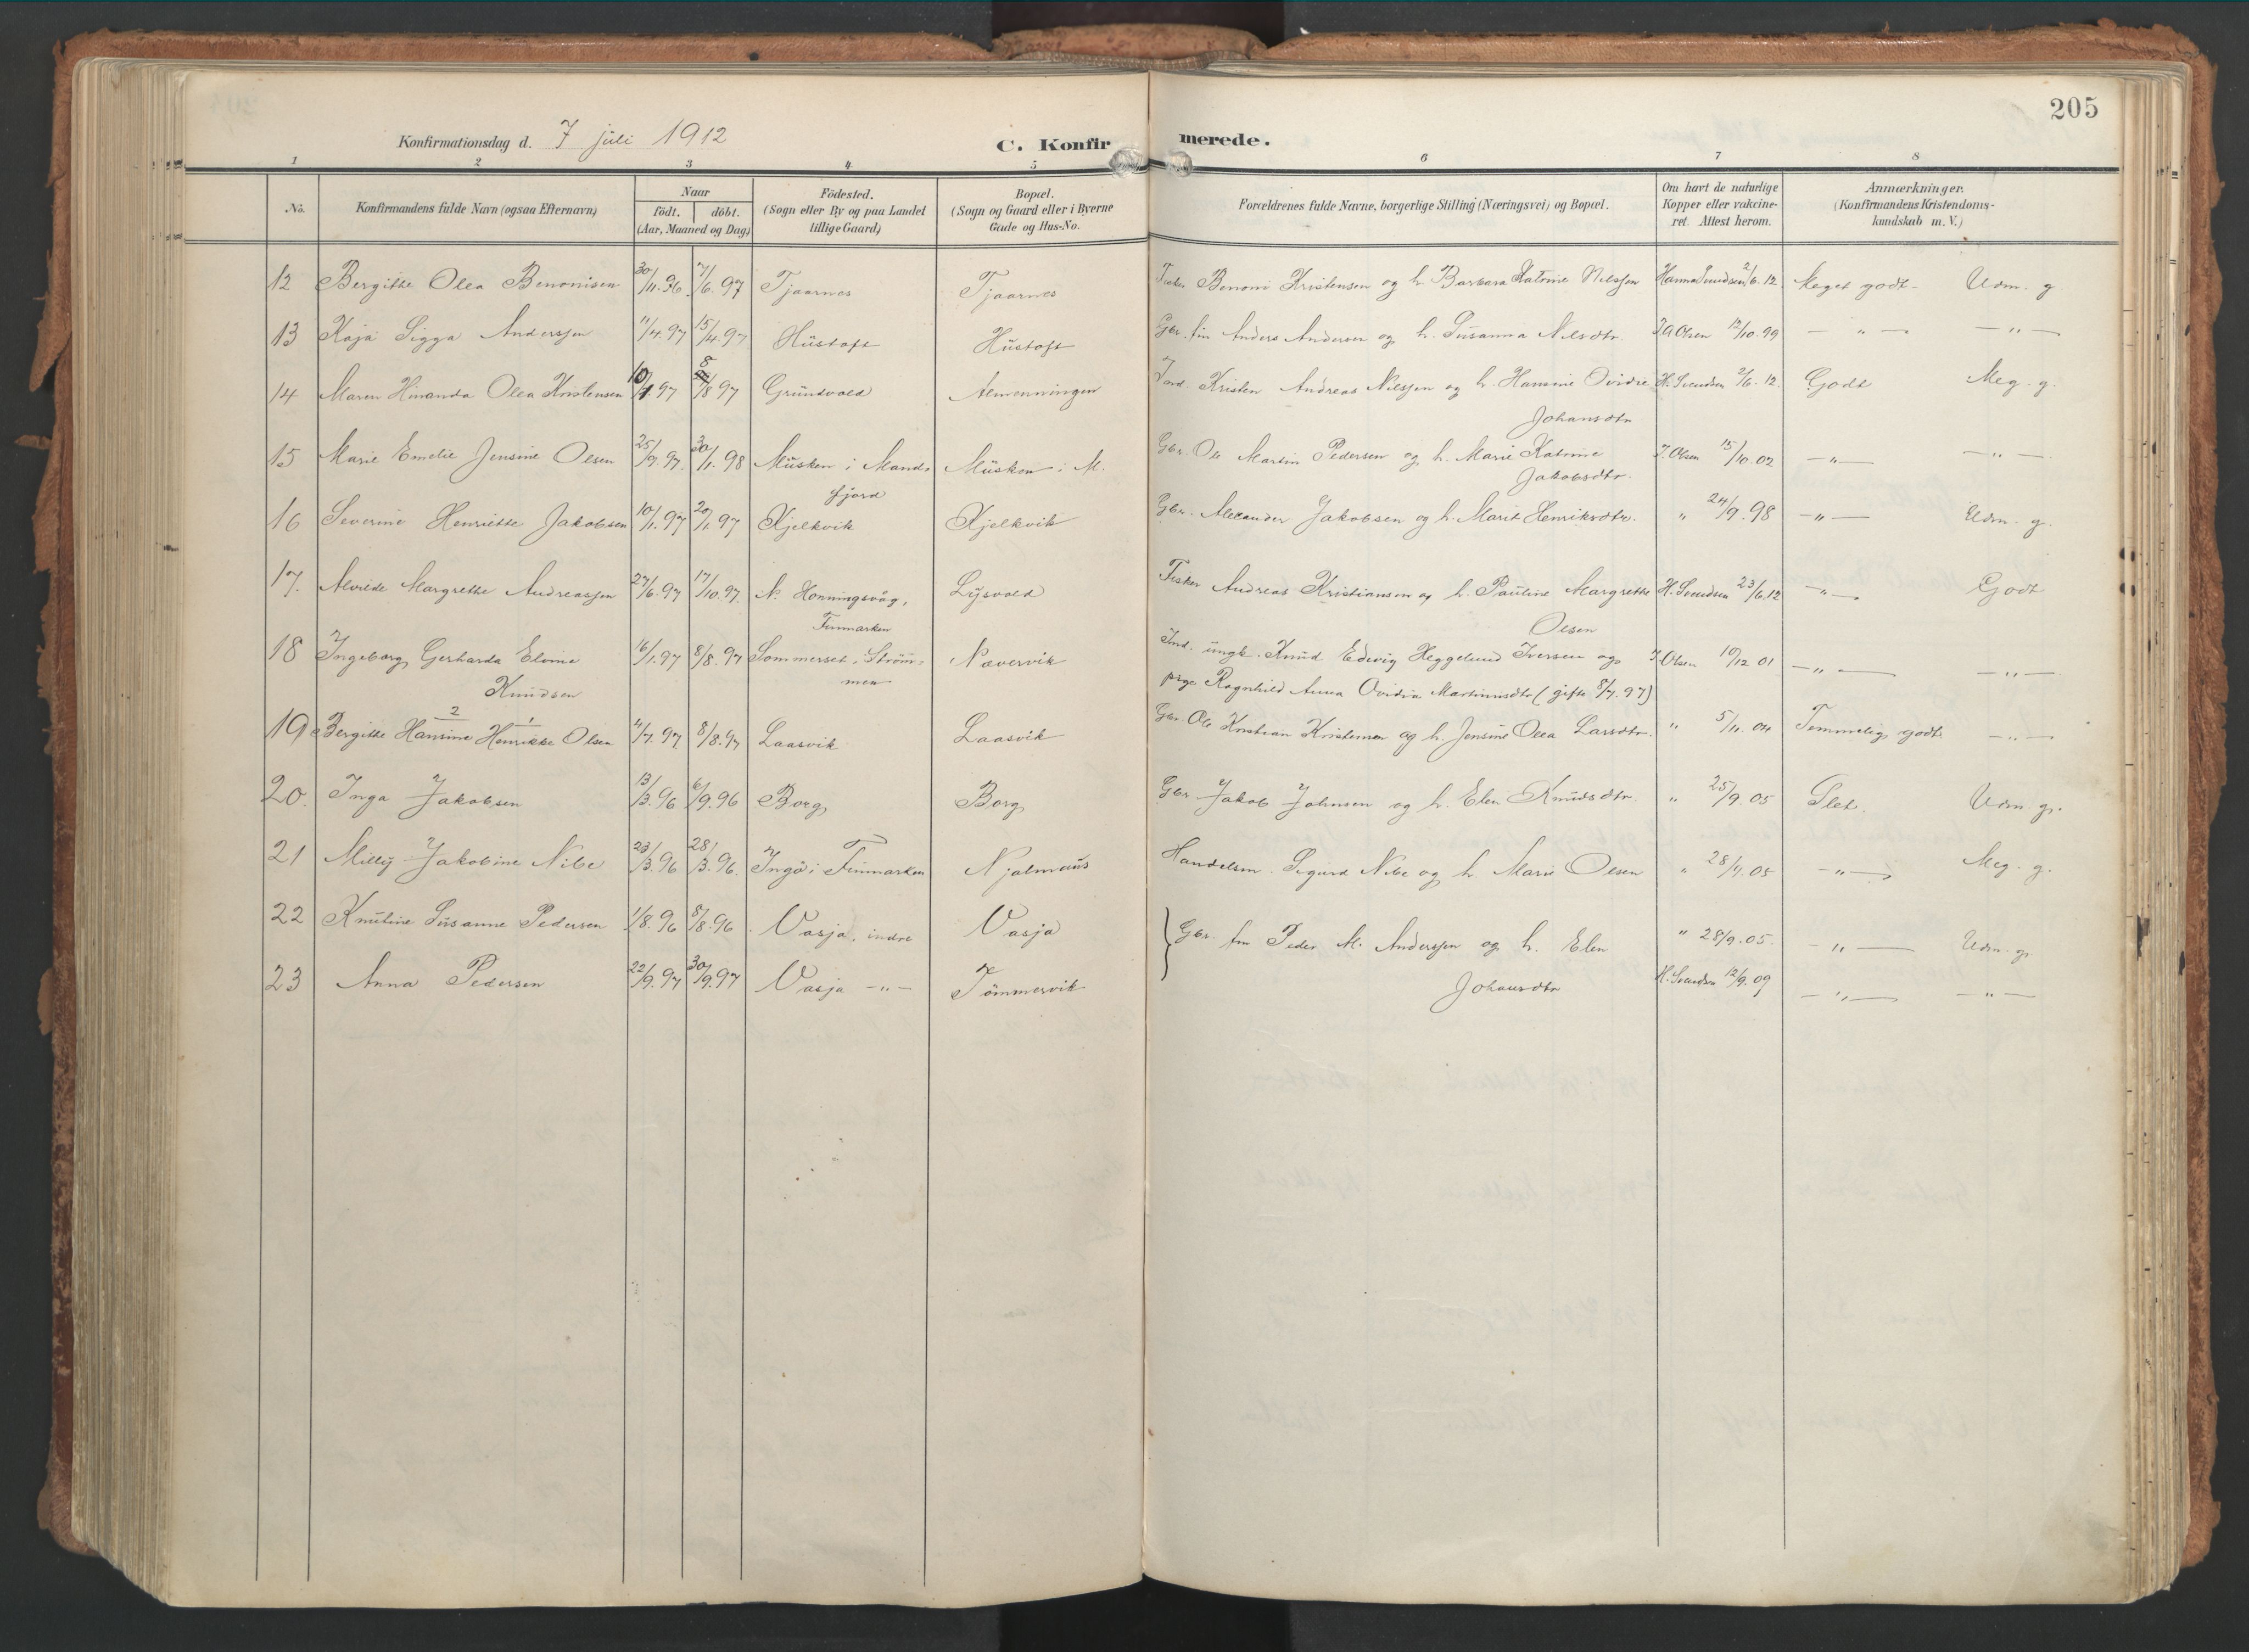 205
Konfirmationsdag d. 7 juli 1912
C. Konfirmerede.
1 2 3 4 5 6 7 8
No.
Konfirmandens fulde Navn (ogsaa Efternavn)
Naar
født. | döbt.
(Aar, Maaned og Dag)
Födested.
(Sogn eller By og paa Landet
tillige Gaard)
Bopæl.
(Sogn og Gaard eller i Byerne
Gade og Hus-No.
Forældrenes fulde Navne, borgerlige Stilling (Næringsvei) og Bopæl.
Om havt de naturlige
Kopper eller vakcine-
ret. Attest herom.
Anmærkninger.
(Konfirmandens Kristendoms-
kundskab m. V.)
12 Bergitte Olea Benonisen 30/11.96 7/6.97 Tjaarnes Tjaarnes Fisker Benoni Kristensen og h. Barbara Katrine Nilssen Hanna Svendsen 2/6.12 Meget godt - Udm. g
13 Kaja Sigga Anderssen 11/4.97 15/4.97 Hüstoft Hüstoft Gbr. fin Anders Andersen og h. Susanna Nilsdtr. I A Olsen 12/10.99 — " — — " —
14 Maren Hinanda Olea Kristensen 10/1.97 8/8 97 Grundvold Almenningen Kristen Andreas Nilssen og h. Hansine Ovidie H. Svendsen 2/6.12. Godt Meg. g.
Johansdtr
15 Marie Emelie Jensine Olsen 25/9.97. 30/1.98 Müsken i Mands Müsken i M. Gbr. Ole Martin Pedersen og h. Marie Katrine I. Olsen 15/10.02 — " — — " —
fjord
Jakobsdtr.
16 Severine Henriette Jakobsen 10/1.97 20/1.97 Kjelkvik Kjelkvik Gbr. Alexander Jakobsen og h. Marit Henriksdtr. " 24/9.98 — " — Udm. g.
17. Alvilde Margrethe Andreassen 27/6.97 17/10.97. N. Honningsvåg, Lijsvold Fisker Andreas Kristiansen og h. Pauline Margrethe H. Svendsen 23/6.12 — " — Godt
Finmarken
Olsen
18 Ingeborg Gerharda Elvine 16/1.97 8/8.97 Sommerset i Ström- Nævervik Ind. ungk. Knud Edevig Heggelund Iversen og I Olsen 19/12 01 — " — — " —
Knudsen
men
pige Ragnhild Anna Ovidia Martinusdtr (gifte 8/7.97)
2 1
19 Bergitte Hansine Henrikke Olsen 4/7.97 8/8.97 Laasvik Laasvik Gbr. Ole Kristian Kristensen og h. Jensine Olea Larsdtr. " 5/11.04 Temmelig godt. — " —
20. Inga Jakobsen 13/3.96 6/9.96 Borg Borg Gbr Jakob Johnsen og h. Elen Knudsdtr. " 25/9.05 Slet. Udm. g.
21 Milly Jakobine Nibe 23/3.96 28/3.96. Ingö i Finmarken Njalmaüs Handelsm. Sigurd Nibe og h. Marie Olsen " 28/9.05 — " — Meg. g.
22 Knutine Susanne Pedersen 1/8.96 8/8.96 Vasja, indre Vasja Gbr. fin Peder M. Anderssen og h. Elen " 28/9.05. — " — Udm. g
23 Anna Pedersen 22/9.97 30/9.97 Vasja — " — Tömmervik Johansdtr H. Svendsen 12/9.09 — " — — " —